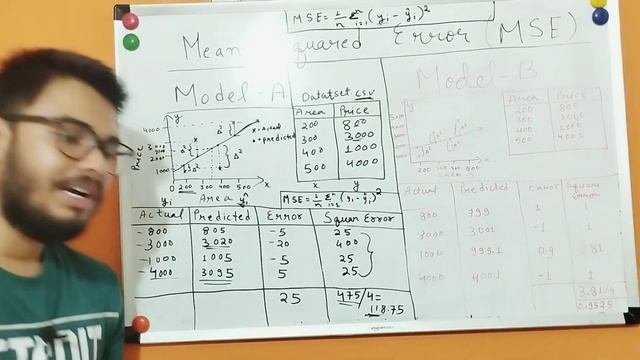 MSE = 1/n Σⁿᵢ₌₁ (yᵢ - ŷᵢ)²
Mean Squared Error (MSE)
Model-A
Datatset.csv
Area Price
200 800
300 3000
400 1000
500 4000
x y
y
4000
3000
2000
1000
0
Price
x - Actual
• Predicted
Δ²
Δ²
200 300 400 500
x
Area
MSE = 1/n Σⁿᵢ₌₁ (yᵢ - ŷᵢ)²
yᵢ ŷᵢ
Actual Predicted Error Squar Error
-800 805 -5 25
-3000 3020 -20 400
-1000 1005 -5 25
-4000 3095 5 25
25 475/4=
118.75
Model-B
Area Price
200 800
300 3000
400 1000
500 4000
Actual Predicted Error Square Error
800 799 1 1
3000 3001 -1 1
1000 999.1 0.9 0.81
4000 4001 -1 1
3.81/4
0.9525